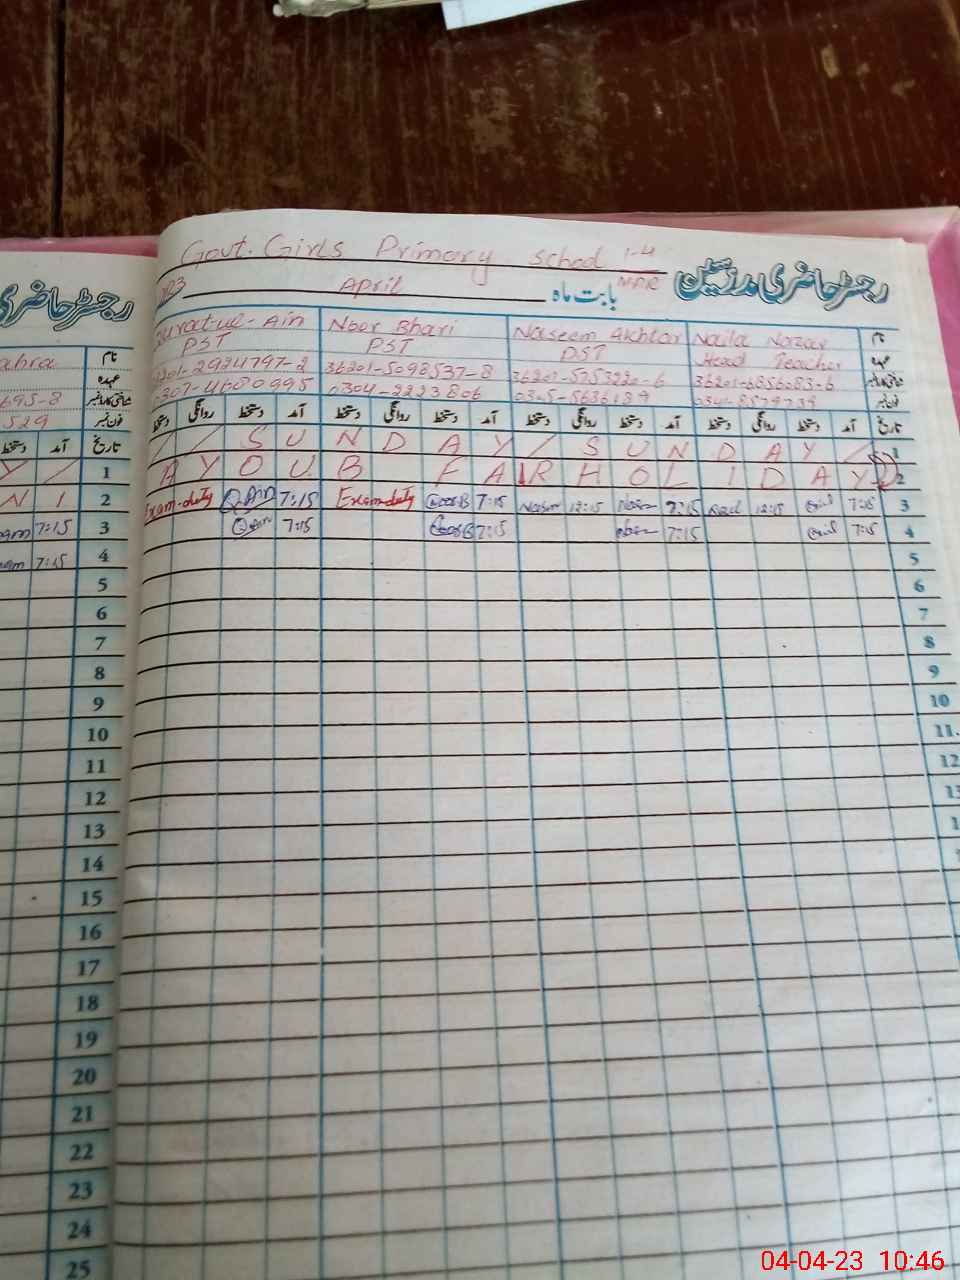 Govt. Girls Primary school 1-4
MPR
رجسٹر حاضری مدرسین
بابت ماہ April
نام
Naila Nazar
Naseem Akhtar
Noor Bhari
Qurat-ul-Ain
عہدہ
Head Teacher
PST
PST
PST
شناختی کارڈ نمبر
36201-6856083-6
36201-5753220-6
36201-5098537-8
36201-2924797-2
فون نمبر
0305-5636189
0304-2223806
0307-4680995
تاریخ آمد دستخط روانگی دستخط آمد دستخط روانگی دستخط آمد دستخط روانگی دستخط آمد دستخط روانگی دستخط
/ / S U N D A Y / S U N D A Y / 1
A Y O U B F A R H O L I D A Y 2
Exam-duty Q.Ain 7:15 Exam duty 7:15 Naseem 12:15 Naseem 7:15 Nail 12:15 Nail 7:15 3
Q.Ain 7:15 7:15 Naseem 7:15 Nail 7:15 4
5
6
7
8
9
10
11
12
رجسٹر حاضری
نام
ahra
عہدہ
شناختی کارڈ نمبر
695-8
فون نمبر
529
تاریخ آمد دستخط
Y / 1
N I 2
7:15 3
7:15 4
5
6
7
8
9
10
11
12
13
14
15
16
17
18
19
20
21
22
23
24
25
04-04-23 10:46